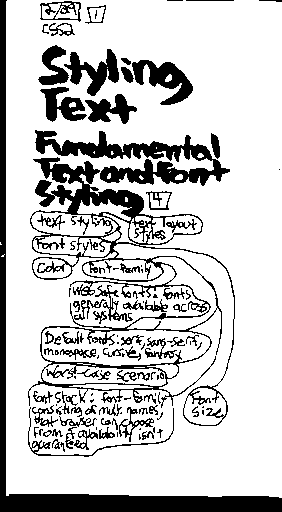 2/29 1
CSS2
Styling
Text
Fundamental
Text and Font
Styling 4
text styling
text layout
styles
Font styles
Color
Font-Family
Web safe fonts: fonts
generally available across
all systems
Default fonts: serif, sans-serif,
monospace, cursive, fantasy
Worst-case scenario
Font Stack: Font-Family
consisting of mult. names,
that browser can choose
from if availability isn't
guaranteed
Font
Size